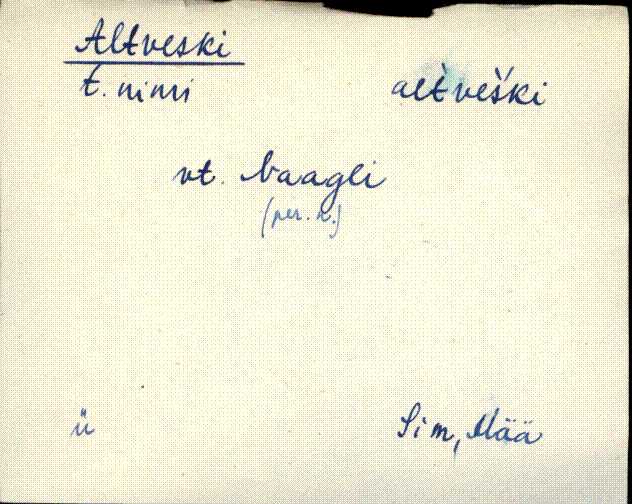 Altveski
t. nimi alt̀vešḱi
vt. Vaagli
(per. n.)
ü Sim, Mää